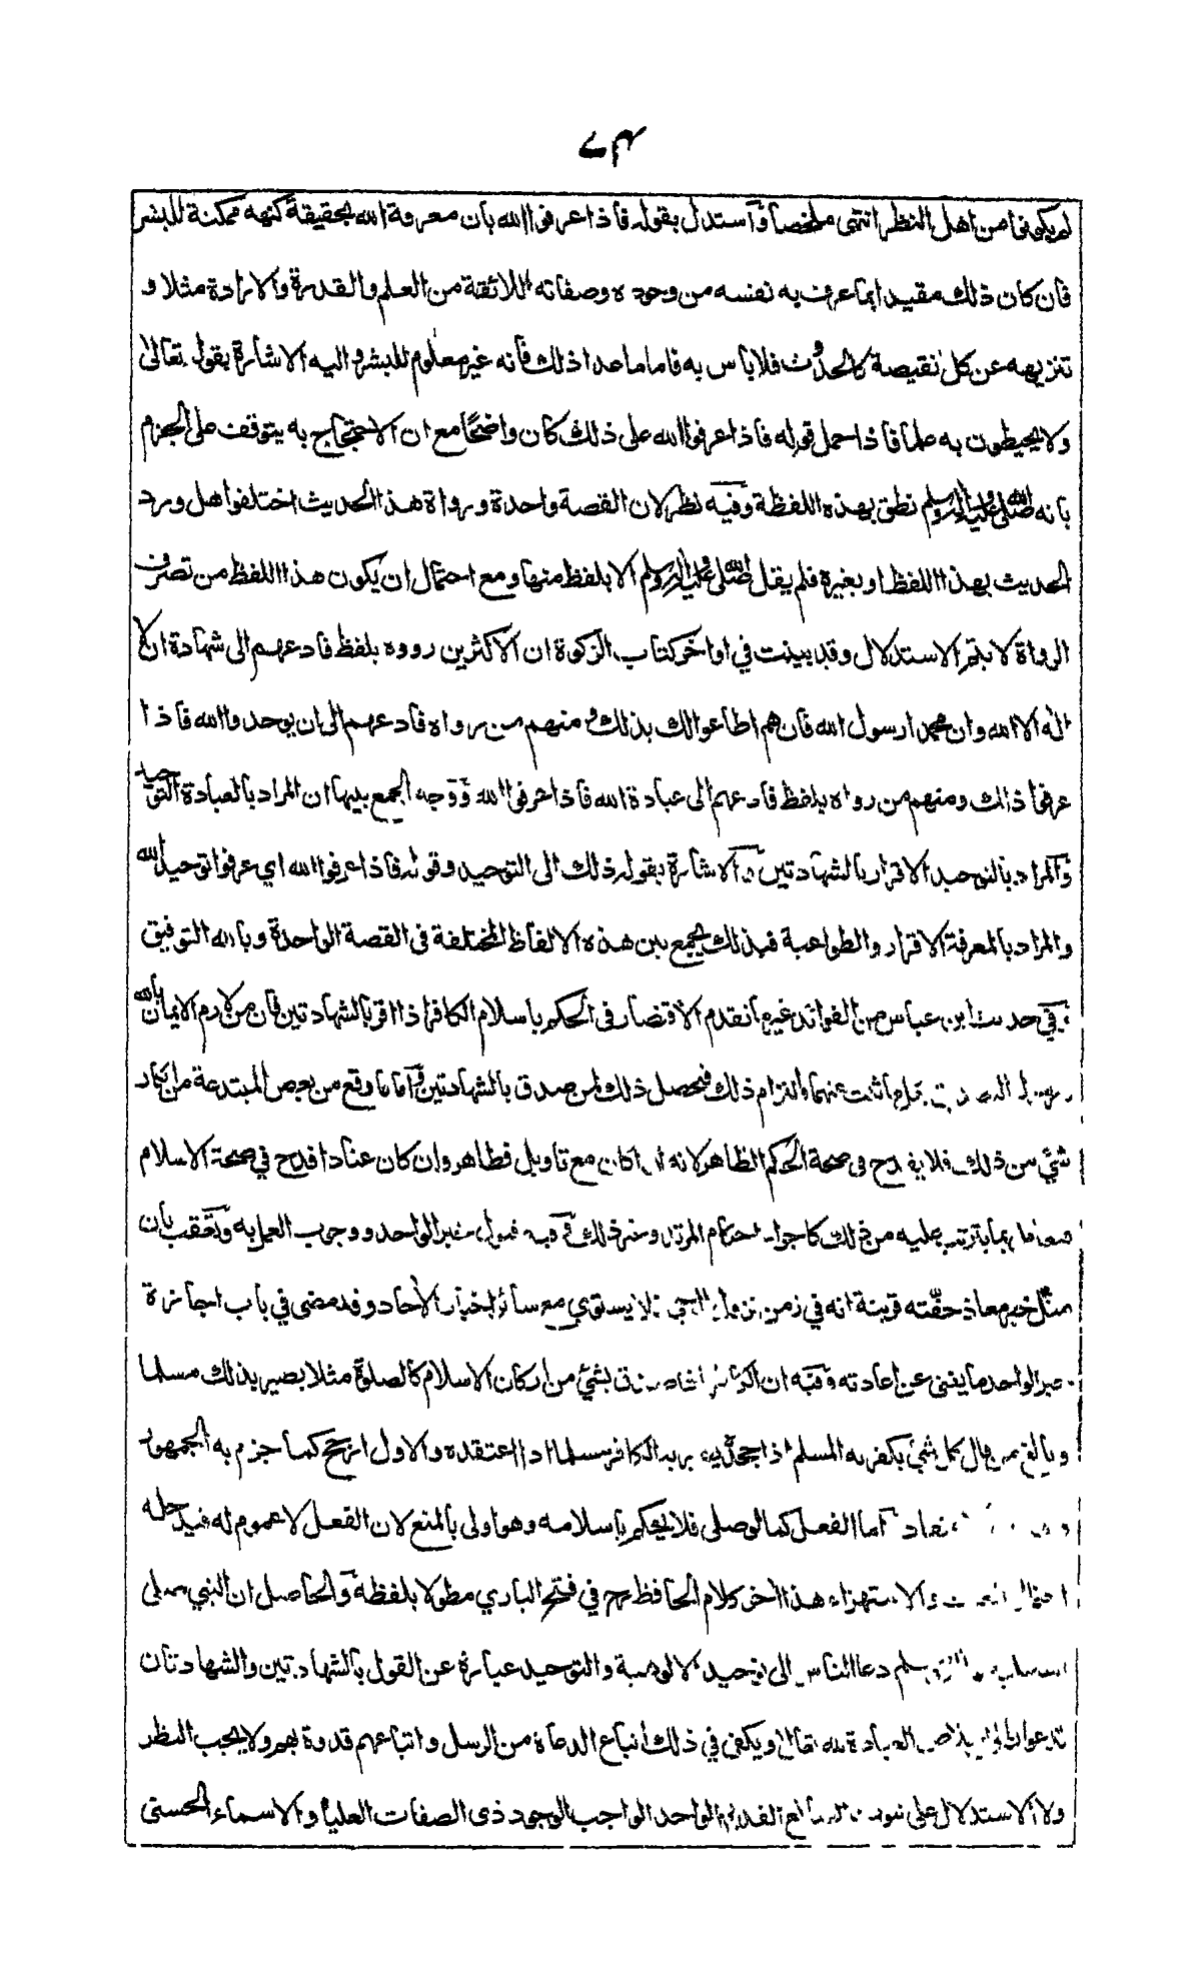 ٧٣
لم يكونوا من اهل النظر انتهى ملخصا وآستدل بقوله فاذا عرفوا الله بان معرفة الله بحقيقة كنهه ممكنة للبشر
فان كان ذلك مقيدا بما عرف به نفسه من وجوده وصفاته اللائقة من العلم والقدرة والارادة مثلا و
تنزيهه عن كل نقيصة كالحدوث فلا باس به فاما ما عدا ذلك فانه غير معلوم للبشر واليه الاشارة بقوله تعالى
ولا يحيطون به علما فاذا حمل قوله فاذا عرفوا الله على ذلك كان واضحا مع ان الاحتجاج به يتوقف على الجزم
بانه صلى الله عليه واله وسلم نطق بهذه اللفظة وفيه نظر لان القصة واحدة ورواة هذا الحديث اختلفوا هل ورد
الحديث بهذا اللفظ او بغيره فلم يقل صلى الله عليه واله وسلم الا بلفظ منها ومع احتمال ان يكون هذا اللفظ من تصرف
الرواة لا يتم الاستدلال وقد بينت في اواخر كتاب الزكوة ان الاكثرين رووه بلفظ فادعهم الى شهادة ان لا
اله الا الله وان محمدا رسول الله فان هم اطاعوا لك بذلك ومنهم من رواه فادعهم الى ان يوحدوا الله فاذا
عرفوا ذلك ومنهم من رواه بلفظ فادعهم الى عبادة الله فاذا عرفوا الله ووجه الجمع بينها ان المراد بالعبادة التوحيد
وآلمراد بالتوحيد الاقرار بالشهادتين والاشارة بقوله ذلك الى التوحيد وقوله فاذا عرفوا الله اي عرفوا توحيد الله
والمراد بالمعرفة الاقرار والطواعية فبذلك يجمع بين هذه الالفاظ المختلفة فى القصة الواحدة وبالله التوفيق
وفي حديث ابن عباس من الفوائد غير ما تقدم الاقتصار فى الحكم باسلام الكافر اذا اقر بالشهادتين فان من لازم الايمان بالله
ورسوله التصديق بكل ما ثبت عنهما والتزام ذلك فيحصل ذلك لمن صدق بالشهادتين وآما ما وقع من بعض المبتدعة من انكار
شيء من ذلك فلا يقدح في صحة الحكم الظاهر لانه ان كان مع تاويل فظاهر وان كان عنادا قدح في صحة الاسلام
فيعامل بما يترتب عليه من ذلك كاجراء احكام المرتد وغير ذلك وفيه قبول خبر الواحد ووجوب العمل به وتعقب بان
مثل خبر معاذ حفته قرينة انه في زمن نزول الوحي فلا يستوي مع سائر اخبار الآحاد وقد مضى في باب اجازة
خبر الواحد ما يغنى عن اعادته وفيه ان الكافر اذا صدق بشيء من اركان الاسلام كالصلوة مثلا يصير بذلك مسلما
وبالغ من قال كل شيء يكفر به المسلم اذا جحده يصير به الكافر مسلما اذا اعتقده والاول ارجح كما جزم به الجمهور
وهذا في الاعتقاد آما الفعل كما لو صلى فلا يحكم باسلامه وهو اولى بالمنع لان الفعل لا عموم له فيدخله
احتمال العبث والاستهزاء هذا اخر كلام الحافظ رح في فتح الباري مطولا بلفظه وآلحاصل ان النبي صلى
الله عليه واله وسلم دعا الناس الى توحيد الالوهية والتوحيد عبارة عن القول بالشهادتين والشهادتان
تدعوان الى اخلاص العبادة لله تعالى ويكفى في ذلك اتباع الدعاة من الرسل واتباعهم قدوة بهم ولا يجب النظر
ولا الاستدلال على ثبوت الصانع القديم الواحد الواجب الوجود ذى الصفات العليا والاسماء الحسنى